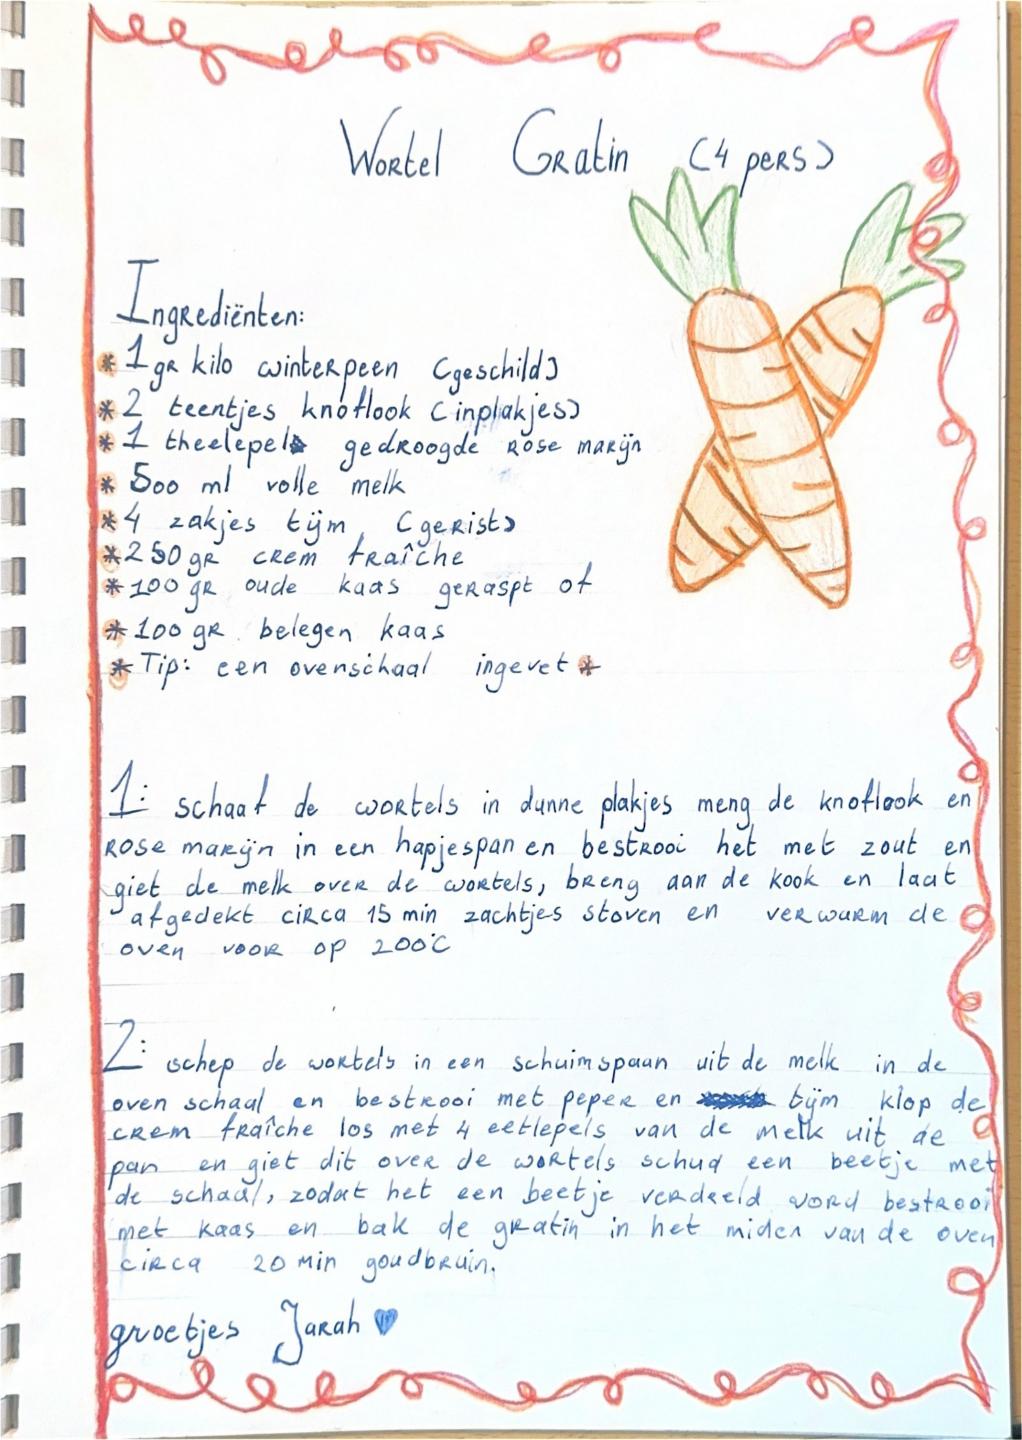 Wortel Gratin (4 pers)
Ingrediënten:
* 1 gr kilo winterpeen (geschild)
* 2 teentjes knoflook (inplakjes)
* 1 theelepel gedroogde rose marijn
* 500 ml volle melk
* 4 zakjes tijm (gerist)
* 250 gr crem fraîche
* 100 gr oude kaas geraspt of
* 100 gr. belegen kaas
* Tip: een ovenschaal ingevet *
1: schaaf de wortels in dunne plakjes meng de knoflook en
rose marijn in een hapjespan en bestrooi het met zout en
giet de melk over de wortels, breng aan de kook en laat
afgedekt circa 15 min zachtjes stoven en verwurm de
oven voor op 200°C
2: schep de wortels in een schuimspaan uit de melk in de
oven schaal en bestrooi met peper en tijm klop de
crem fraîche los met 4 eetlepels van de melk uit de
pan en giet dit over de wortels schud een beetje met
de schaal, zodat het een beetje verdeeld word bestrooi
met kaas en bak de gratin in het miden van de oven
circa 20 min goudbruin.
groetjes Jarah